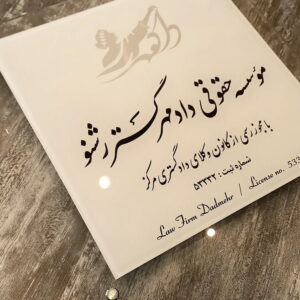 موسسه حقوقی دادمهر گستر رشنو
با مجوز رسمی از کانون وکلای دادگستری مرکز
شماره ثبت : ۵۳۳۳۲
Law Firm Dadmehr / License no. 533